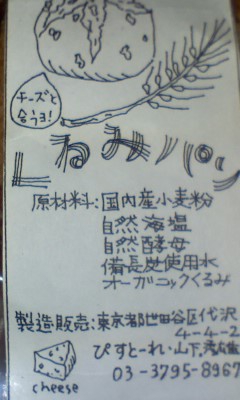 チーズと
合うヨ!
くるみパン
原材料:国内産小麦粉
自然海塩
自然酵母
備長炭使用水
オーガニックくるみ
製造販売:東京都世田谷区代沢
4-4-2
ぴすとーれ・山下
03-3795-8967
cheese